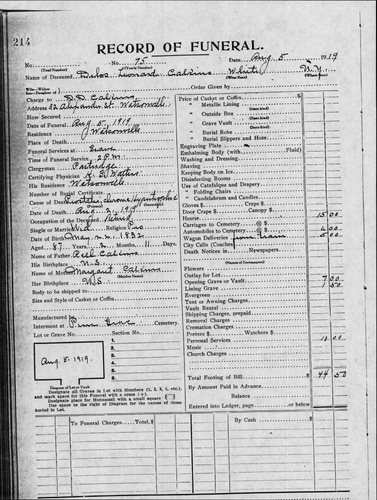 214
RECORD OF FUNERAL.
No. No. 75 Date Aug. 5 1919
(Total Number) (Yearly Number)
Name of Deceased Delos Leonard Calkins White N.Y.
(What Race) (Where Born)
Charge to D.D. Calkins Order Given by
Address 52 Alexander St. Watsonville
How Secured
Date of Funeral Aug. 5, 1919
Residence Watsonville
Place of Death
Funeral Services at Grave
Time of Funeral Service 2 P.M.
Clergyman
Certifying Physician Watters
His Residence Watsonville
Number of Burial Certificate
Cause of Death
Date of Death Aug. 2, 1919
Occupation of the Deceased
Single or Married Wid Religion
Date of Birth May 1832
Aged 87 Years 2 Months 11 Days
Name of Father Calkins
His Birthplace
Name of Mother Margaret Calkins
(Maiden Name)
Her Birthplace
Body to be shipped to
Size and Style of Casket or Coffin
Manufactured by
Interment at Cemetery
Lot or Grave No. Section No.
1.
2.
3.
4.
5.
Aug. 5. 1919.
Diagram of Lot or Vault
Designate all Graves in Lot with Numbers (1, 2, 3, etc.), and mark this Funeral with a cross (+)
Designate place for Monument with a small square
Use space to the right of Diagram for the names of those Buried in Lot.
Price of Casket or Coffin
" Metallic Lining
(State kind)
" Outside Box
(State kind)
" Grave Vault
(State kind)
" Burial Robe
(State kind)
" Burial Slippers and Hose
Engraving Plate
Embalming Body (with Fluid)
Washing and Dressing
Shaving
Keeping Body on Ice
Disinfecting Rooms
Use of Catafalque and Drapery
" Folding Chairs
" Candelabrum and Candles
Gloves $ Crape $
Door Crape $ Canopy $
Hearse 15.00
Carriages to Cemetery @ $
Automobiles to Cemetery @ $ 6 00
Wagon Deliveries from Train 5 00
City Calls (Coaches) @ $
Death Notices in Newspapers
(Names of Newspapers)
Flowers
Outlay for Lot
Opening Grave or Vault 7 00
Lining Grave 1 50
Evergreen
Tent or Awning Charges
Vault Rental
Shipping Charges, prepaid
Removal Charges
Cremation Charges
Porters $ Watchers $
Personal Services 10 00
Music
Church Charges
Total Footing of Bill $ 44 50
By Amount Paid in Advance
Balance
Entered into Ledger, page or below
To Funeral Charges. Total, $